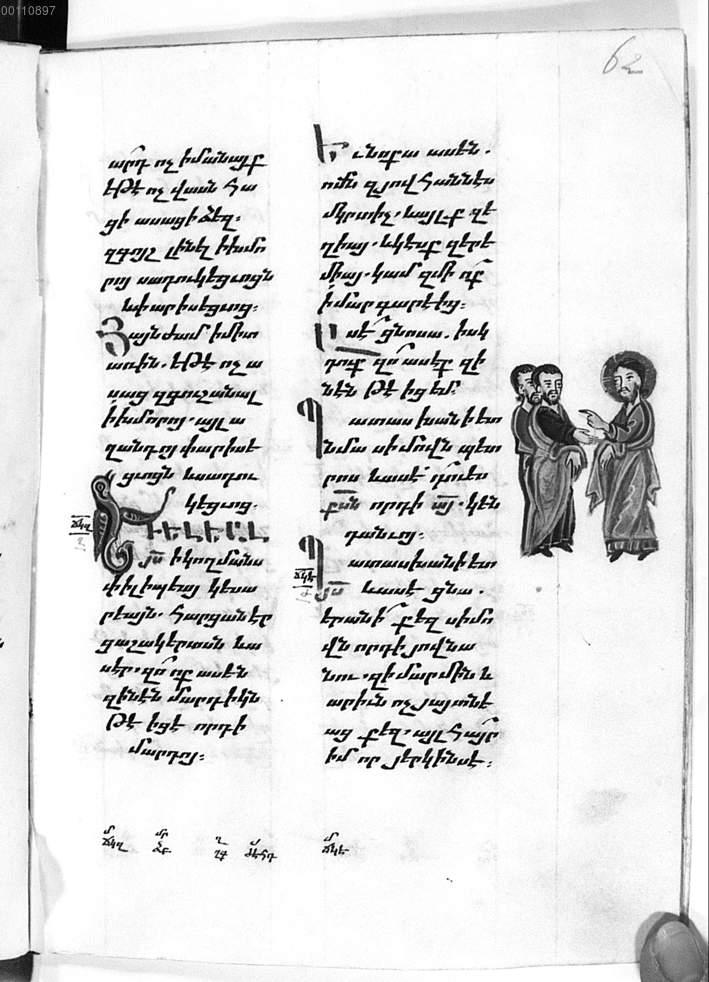 00110897
62
արդ ոչ իմանայք
եթէ ոչ վասն հա
ցի ասացի ձեզ։
զգոյշ լինել ի խմո
րոյ սադուկեցւոցն
և փարիսեցւոց։
Յայնժամ ի միտ
առին. եթէ ոչ ա
սաց զգուշանալ
ի խմորոյ. այլ ա
ղանդոյ փարիսե
ցւոցն և սադու
կեցւոց.
ԻԵԼԵԱԼ
յս ի կողմանս
փիլիպեայ կեսա
րեայն. հարցանէր
ցաշակերտսն և ա
սէր. զո՞ ոք ասեն
զինէն մարդիկն
թէ իցէ որդի
մարդոյ։
Եւ նոքա ասեն.
ոմն զյովհաննէս
մկրտիչ. այլք զէ
ղիայ. և կէսք զերե
միայ. կամ զմի ոք
ի մարգարէից։
Ասէ ցնոսա. իսկ
դուք զո՞ ասէք զի
նէն թէ իցեմ.
Պատասխանի ետ
նմա սիմովն պետ
րոս և ասէ դու ես
քսն որդի այ. կեն
դանւոյ։
Պատասխանի ետ
յս և ասէ ցնա.
երանի՜ քեզ սիմո
վն որդի յովնա
նու. զի մարմին և
արիւն ոչ յայտնե
աց քեզ. այլ հայր
իմ որ յերկինս է։
ճկզ
ճկէ